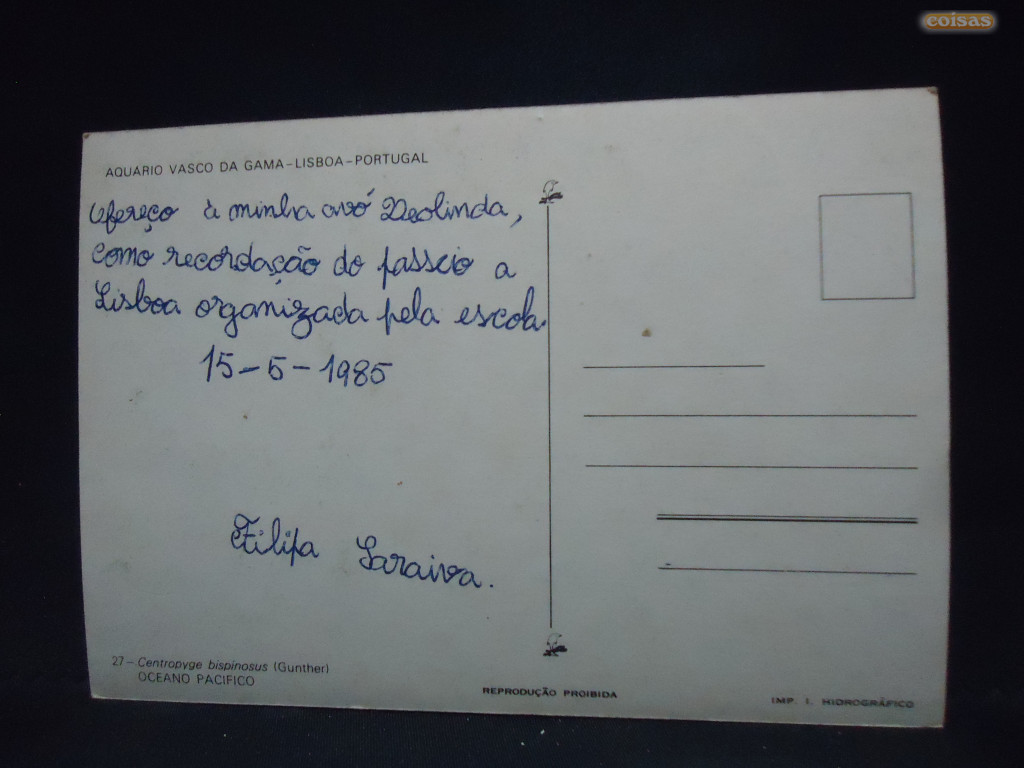 coisas
AQUARIO VASCO DA GAMA-LISBOA-PORTUGAL
Ofereço à minha avó Deolinda,
como recordação do passeio a
Lisboa organizada pela escola.
15-5-1985
Filipa Saraiva.
27- Centropyge bispinosus (Gunther)
OCEANO PACIFICO
REPRODUÇÃO PROIBIDA
IMP. I. HIDROGRÁFICO